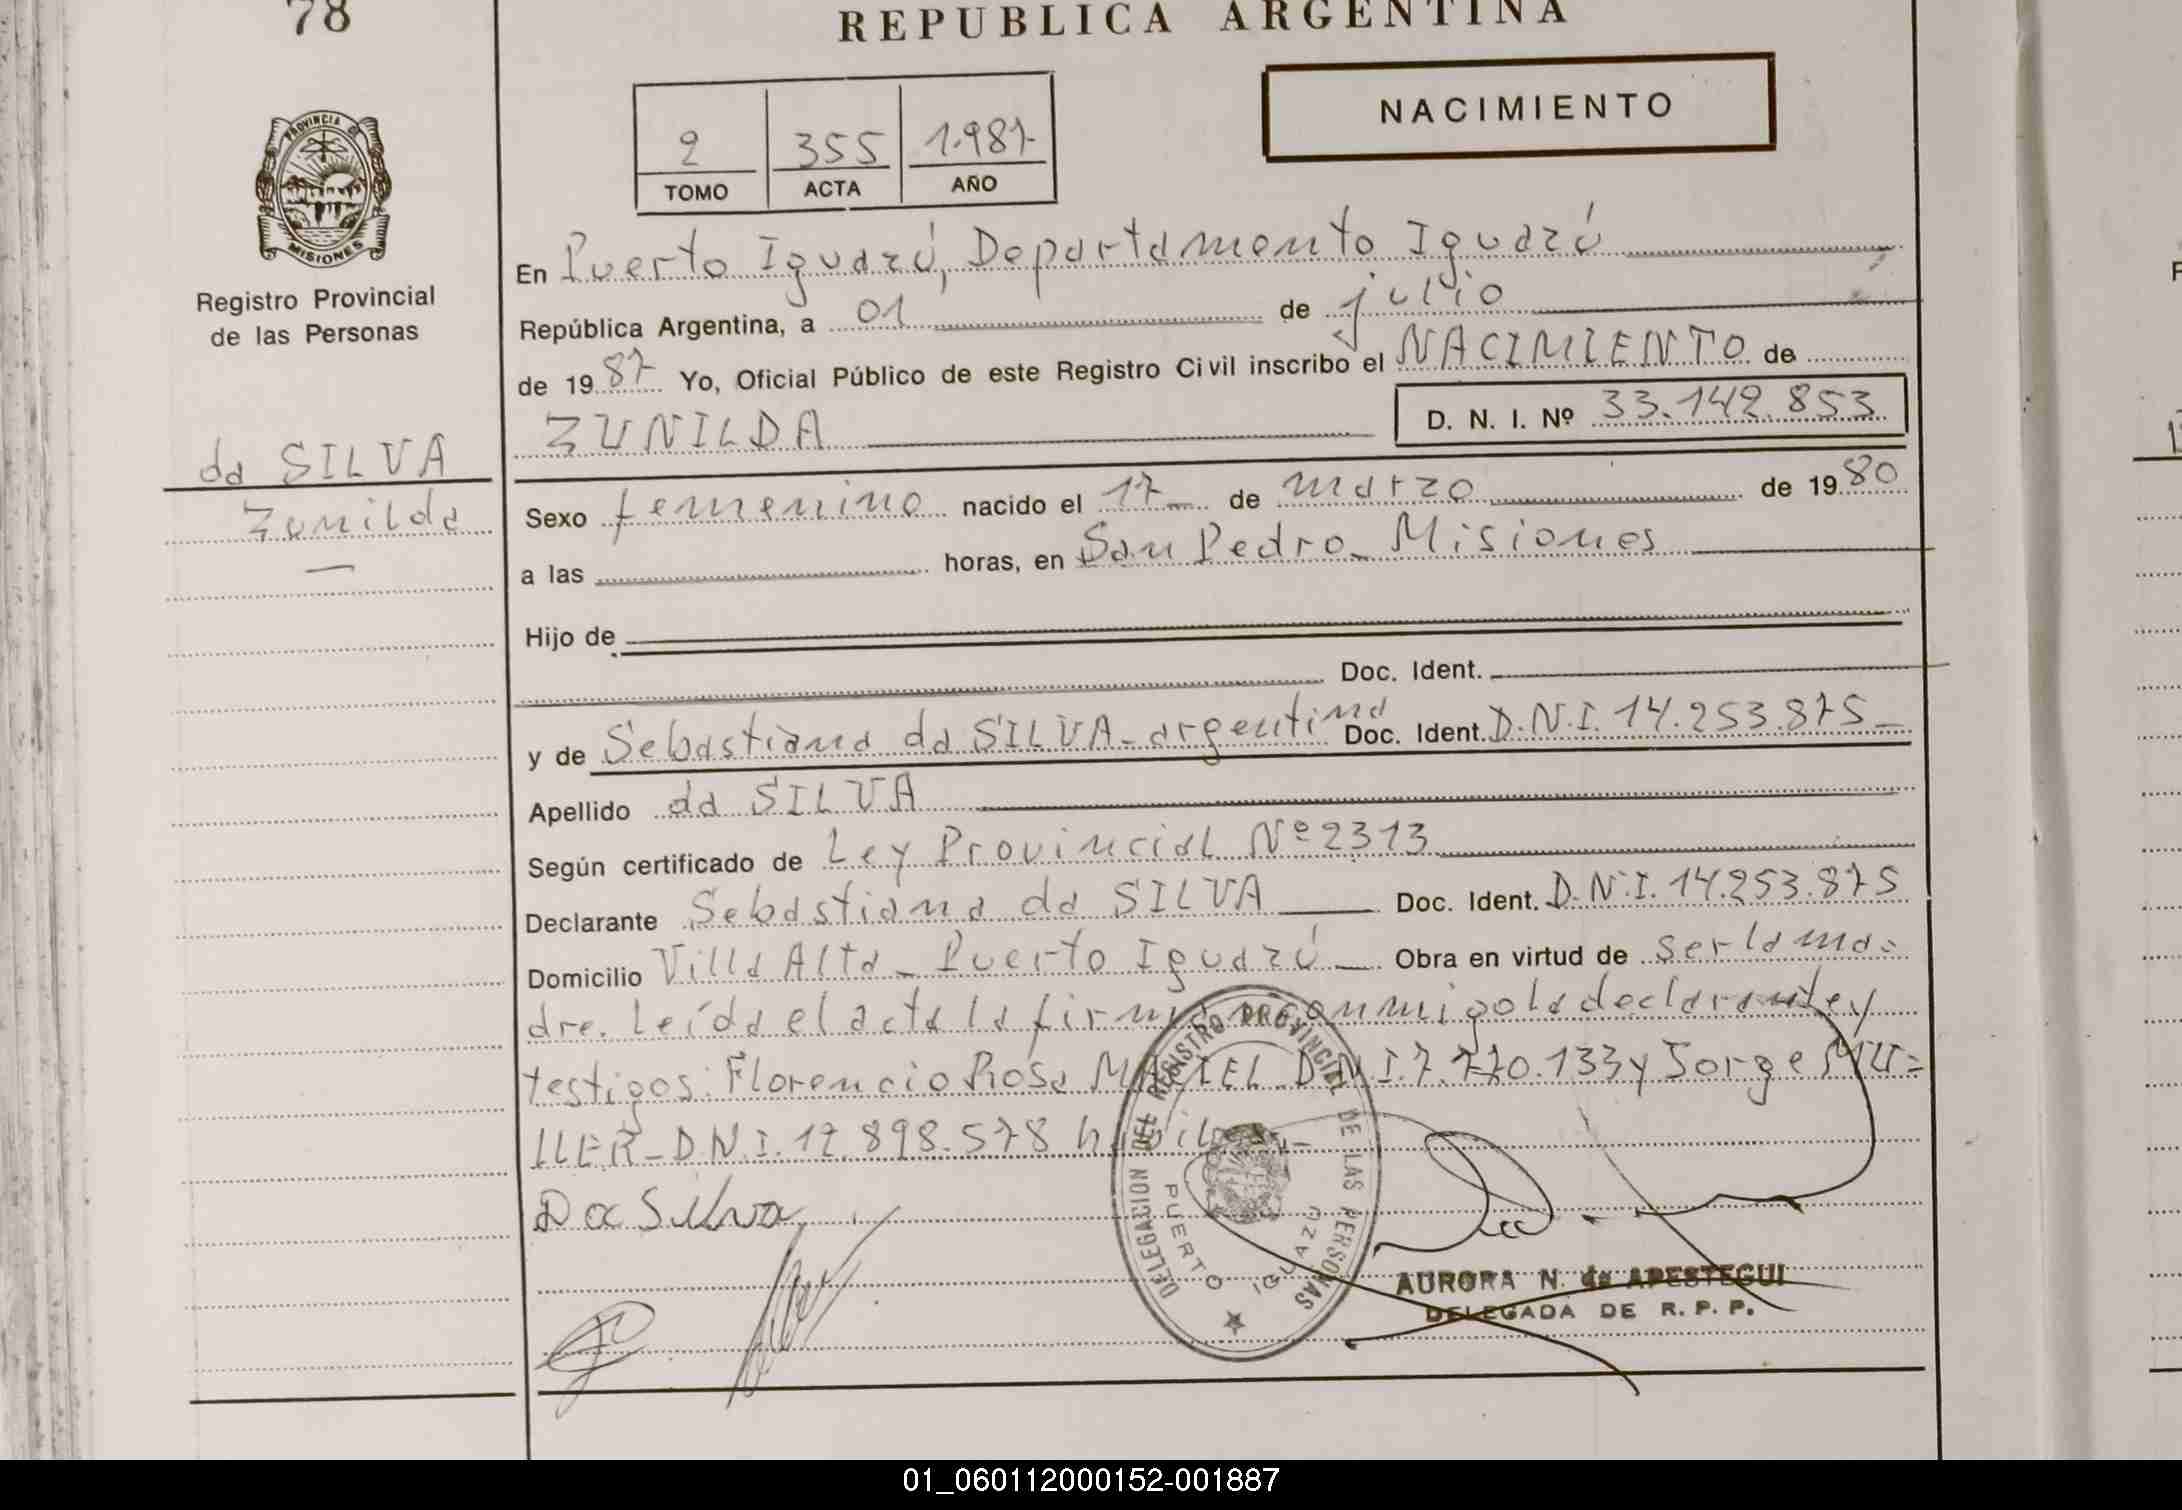 78
REPUBLICA ARGENTINA
NACIMIENTO
2 355 1.987
TOMO ACTA AÑO
PROVINCIA DE MISIONES
Registro Provincial
de las Personas
da SILVA
Zunilda
En Puerto Iguazú, Departamento Iguazú
República Argentina, a 01 de julio
de 1987 Yo, Oficial Público de este Registro Civil inscribo el NACIMIENTO de
ZUNILDA D. N. I. Nº 33.142.853
Sexo femenino nacido el 17 de marzo de 1980
a las horas, en San Pedro - Misiones
Hijo de
Doc. Ident.
y de Sebastiana da SILVA - argentina Doc. Ident. D.N.I. 14.253.875
Apellido da SILVA
Según certificado de Ley Provincial Nº 2313
Declarante Sebastiana da SILVA Doc. Ident. D.N.I. 14.253.875
Domicilio Villa Alta - Puerto Iguazú Obra en virtud de ser la ma=
dre. Leída el acta la firman conmigo la declarante y
testigos: Florencio Rosa MACIEL D.N.I. 7.770.133 y Jorge MU=
LLER - D.N.I. 12.898.578
Da Silva
DELEGACION DEL REGISTRO PROVINCIAL DE LAS PERSONAS
PUERTO IGUAZU
AURORA N. de APESTEGUI
DELEGADA DE R. P. P.
01_060112000152-001887